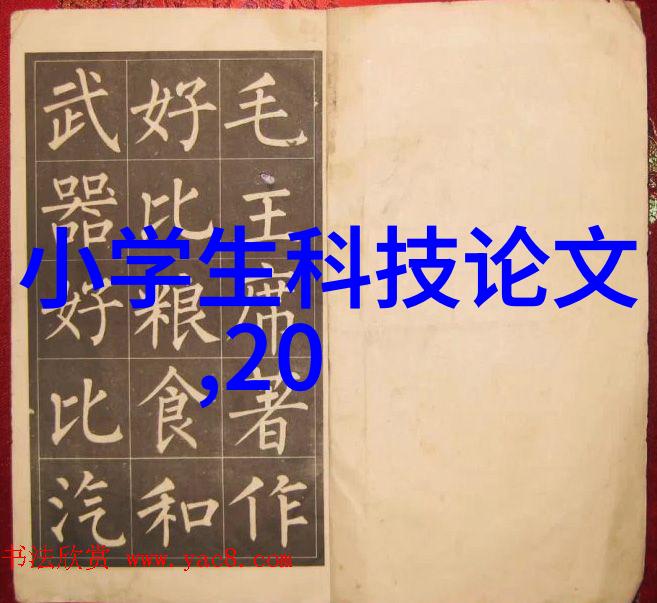 毛主席著作
好比粮食和
武器好比汽
小学生科技论文
,20
书法欣赏 www.yac8.com